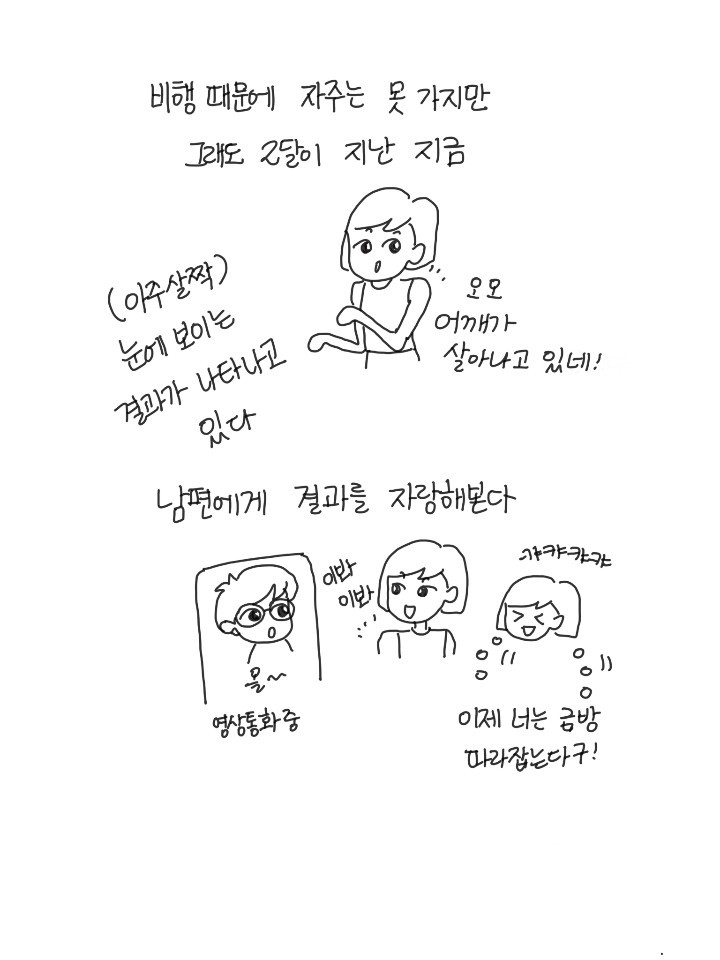 비행 때문에 자주는 못 가지만
그래도 2달이 지난 지금
(아주살짝)
눈에 보이는
결과가 나타나고
있다
오모
어깨가
살아나고 있네!
남편에게 결과를 자랑해본다
이봐
이봐
올~
영상통화중
꺄캬캬캬
이제 너는 금방
따라잡는다구!